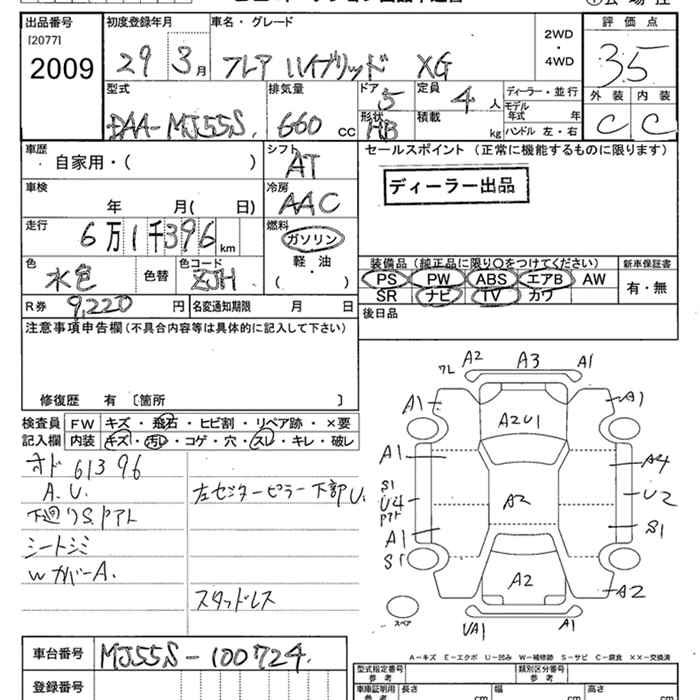 出品番号 初度登録年月 車名・グレード 評価点
[2077]
2009 29 3月 フレア ハイブリッド XG 2WD・4WD 35
型式 排気量 ドア 5 定員 4人 ディーラー・並行 外装 内装
DAA-MJ55S. 660 cc 形状 HB 積載 kg モデル年式 年 C C
ハンドル 左・右
車歴 自家用・( ) シフト AT セールスポイント (正常に機能するものに限ります)
車検 年 月( 日) 冷房 AAC ディーラー出品
走行 6万1千396km 燃料 ガソリン・軽油・( )
色 水色 色替 色コード ZJH
装備品 (純正品に限り○をつけてください) 新車保証書
PS PW ABS エアB AW 有・無
SR ナビ TV カワ
R券 9,220円 名変通知期限 月 日 後日品
注意事項申告欄 (不具合内容等は具体的に記入して下さい)
修復歴 有 〔箇所 〕
検査員 FW キズ・飛石・ヒビ割・リペア跡・×要
記入欄 内装 キズ・汚レ・コゲ・穴・スレ・キレ・破レ
オド 61396
A.U. 左センターピラー下部U.
下廻りS.Pアト
シートシミ
WカバーA.
スタッドレス
フレ A2 A3 A1
A1 A2U1 A1
A1 A4
S1 U4 Pアト A2 U2
A1 S1
S1
A2 A2
スペア UA1 A1
A-キズ E-エクボ U-凹み W-補修跡 S-サビ C-腐食 ××-交換済
車台番号 MJ55S-100724. 型式指定番号 参考 類別区分番号 参考
登録番号 車庫証明用 参考 長さ cm 幅 cm 高さ cm